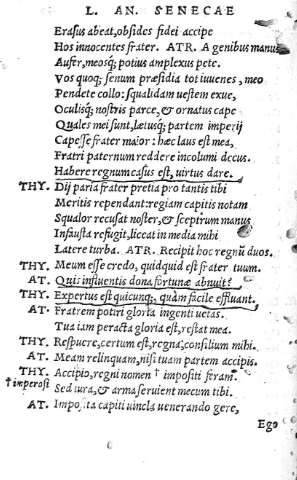 L. AN. SENECAE
Erasus abeat, obsides fidei accipe
Hos innocentes frater. ATR. A genibus manus
Aufer, meosq; potius amplexus pete.
Vos quoq; senum præsidia tot iuuenes, meo
Pendete collo: squalidam uestem exue,
Oculisq; nostris parce, & ornatus cape
Quales mei sunt, lætusq; partem imperij
Capesse fratер maior: hæc laus est mea,
Fratri paternum reddere incolumi decus.
Habere regnum casus est, uirtus dare.
THY. Dij paria frater pretia pro tantis tibi
Meritis rependant: regiam capitis notam
Squalor recusat noster, & sceptrum manus
Infausta refugit, liceat in media mihi
Latere turba. ATR. Recipit hoc regnũ duos.
THY. Meum esse credo, quidquid est frater tuum.
AT. Quis influentis dona fortunæ abnuit?
THY. Expertus est quicunq;, quàm facile effluant.
AT. Fratrem potiri gloria ingenti uetas.
Tua iam peracta gloria est, restat mea.
THY. Respuere, certum est, regna, consilium mihi.
AT. Meam relinquam, nisi tuam partem accipis.
THY. Accipio, regni nomen † impositi feram.
† imperosi Sed iura, & arma seruient mecum tibi.
AT. Imposita capiti uincla uenerando gere,
Ego